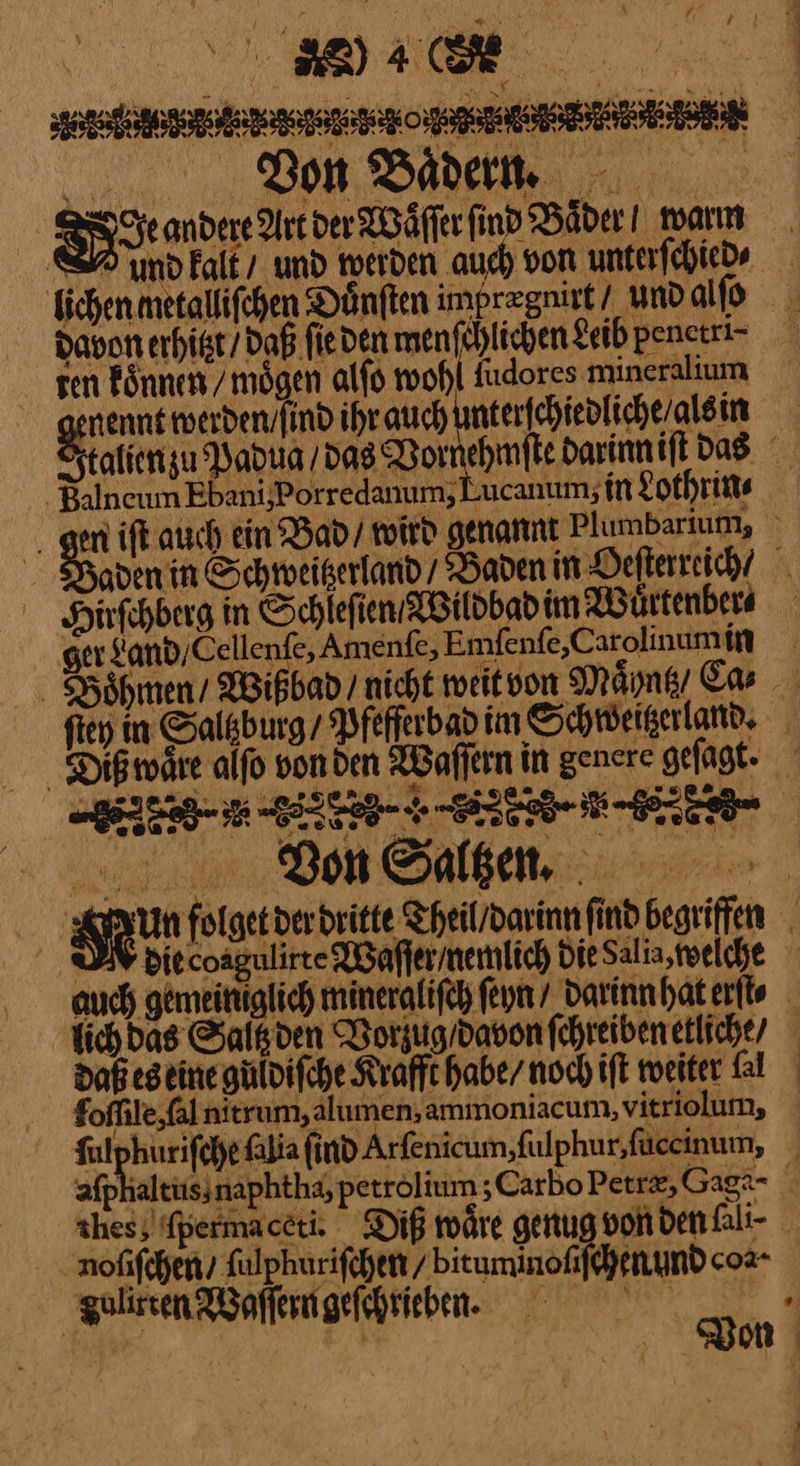 4
Von Bådern.
DIe andere Art der Wåſſer ſind Båder / warm
und kalt / und werden auch von unterſchied⸗
lichen metalliſchen Důnſten imprægnirt / und alſo
davon erhitzt / daß ſie den menſchlichen Leib penetri-
ren kőnnen / mőgen alſo wohl ſudores mineralium
genennt werden / ſind ihr auch unterſchiedliche / als in
Italien zu Padua / das Vornehmſte darinn iſt das
Balneum Ebani, Porredanum, Lucanum, in Lothrin⸗
gen iſt auch ein Bad / wird genannt Plumbarium,
Baden in Schweitzerland / Baden in Oeſterreich /
Hirſchberg in Schleſien / Wildbad im Wůrtenber⸗
ger Land / Cellenſe, Amenſe, Emſenſe, Carolinum in
Bőhmen / Wißbad / nicht weit von Måyntz / Ca⸗
ſtey in Saltzburg / Pfefferbad im Schweitzerland.
Diß wåre alſo von den Waſſern in genere geſagt.
Von Saltzen.
NUn folget der dritte Theil / darinn ſind begriffen
die coagulirte Waſſer / nemlich die Salia, welche
auch gemeiniglich mineraliſch ſeyn / darinn hat erſt⸗
lich das Saltz den Vorzug / davon ſchreiben etliche /
daß es eine gůldiſche Krafft habe / noch iſt weiter ſal
foſſile, ſal nitrum, alumen, ammoniacum, vitriolum,
ſulphuriſche ſalia ſind Arſenicum, ſulphur, ſuccinum,
aſphaltus, naphtha, petrolium; Carbo Petræ, Gaga-
thes, ſperma ceti. Diß wåre genug von den ſali-
noſiſchen / ſulphuriſchen / bituminoſiſchen und coa-
gulirten Waſſern geſchrieben.
Von